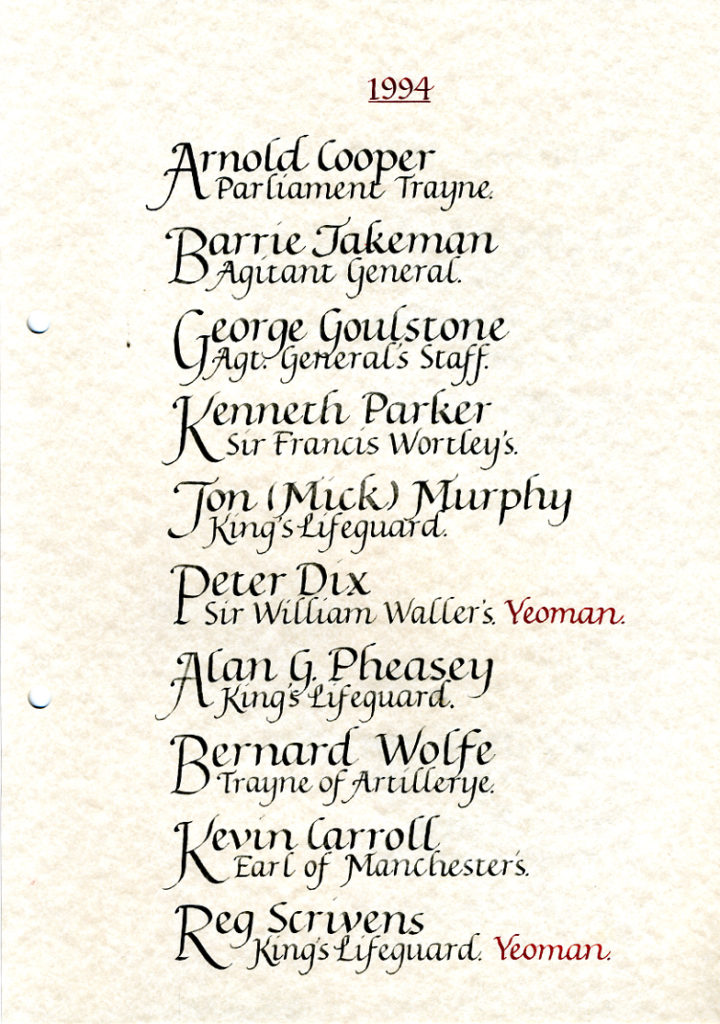 1994
Arnold Cooper
Parliament Trayne.
Barrie Takeman
Agitant General.
George Goulstone
Agt. General's Staff.
Kenneth Parker
Sir Francis Wortley's.
Jon (Mick) Murphy
King's Lifeguard.
Peter Dix
Sir William Waller's. Yeoman.
Alan G. Pheasey
King's Lifeguard.
Bernard Wolfe
Trayne of Artillerye.
Kevin Carroll
Earl of Manchester's.
Reg Scrivens
King's Lifeguard. Yeoman.